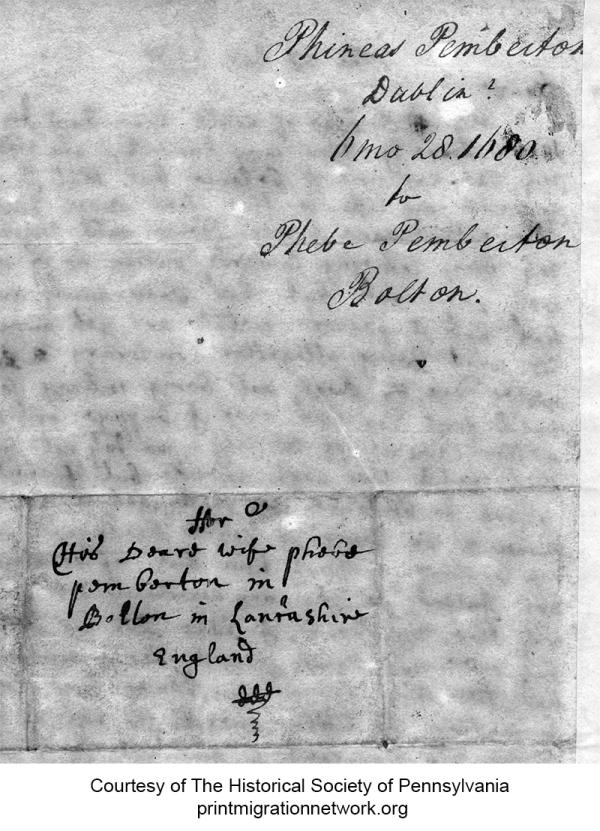 Phineas Pemberton
Dublin?
6mo 28. 1680
to
Phebe Pemberton
Bolton.
ffor
His Deare wife phebe
pemberton in
Bolton in Lancashire
England
Courtesy of The Historical Society of Pennsylvania
printmigrationnetwork.org